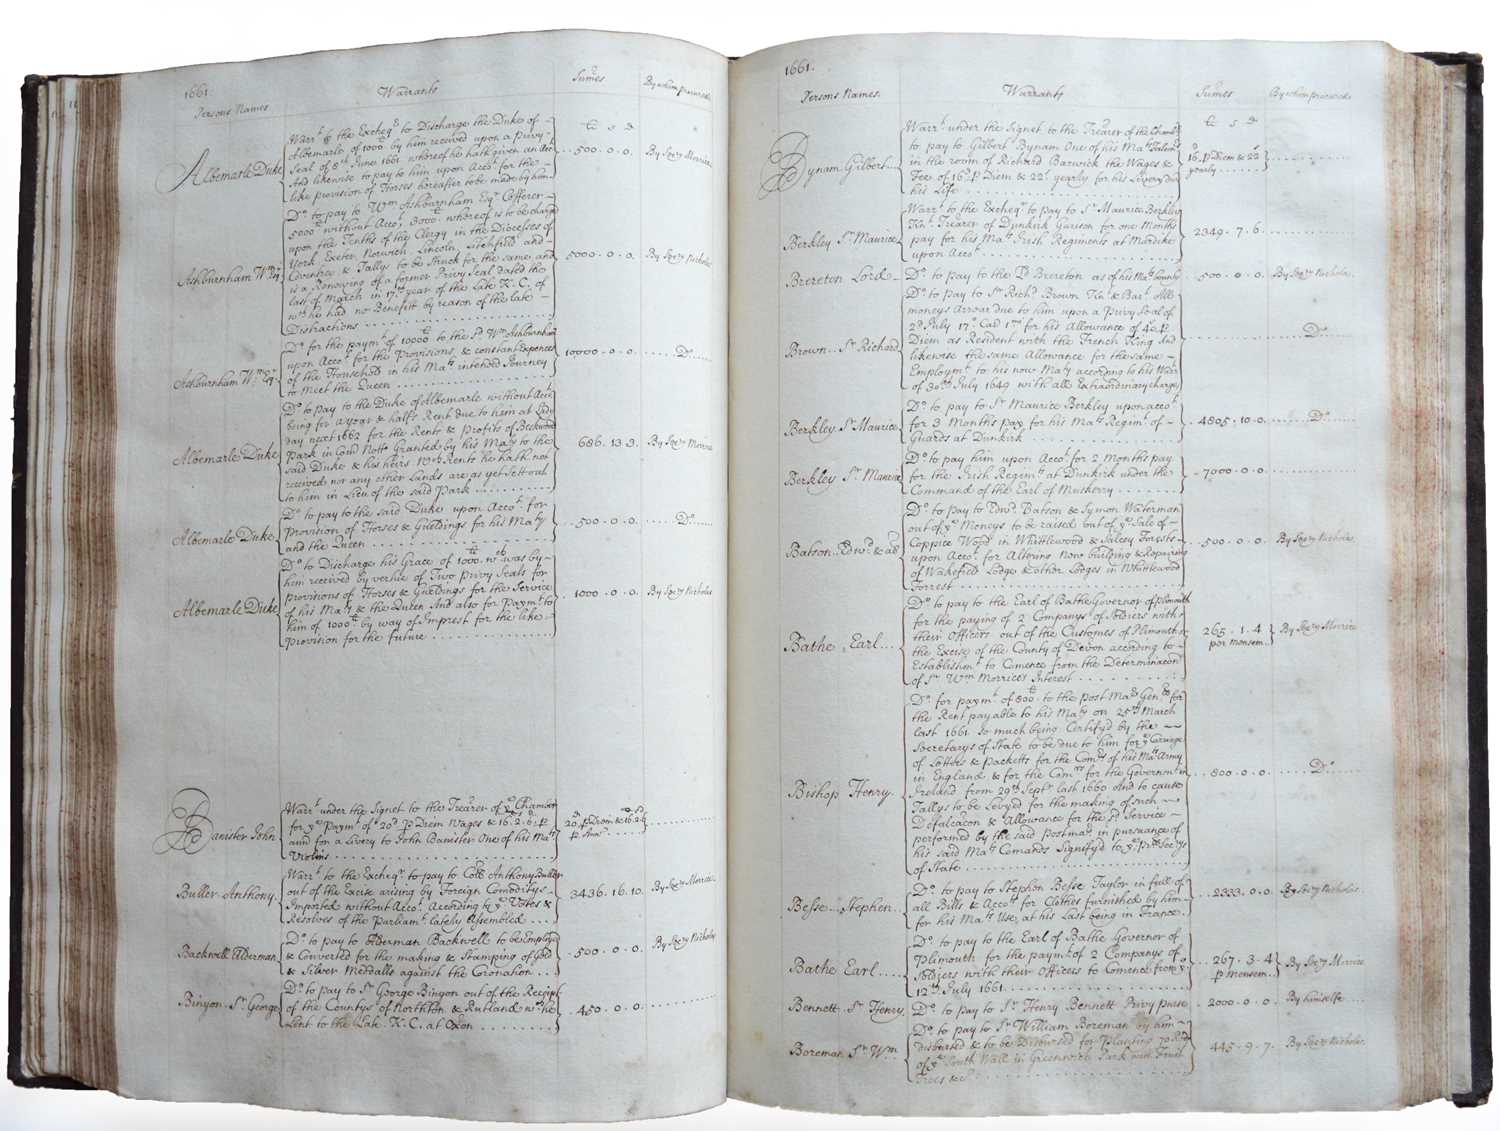 1661.
Persons Names
Warrants
Sumes
By whom procured
£ s d
Albemarle Duke
Warrt to the Excheqr to Discharge the Duke of
Albemarle of 1000£ by him received upon a Privy
Seal of 8th June 1661 whereof he hath given an Acct
And likewise to pay to him upon Acct for the
like provision of Horses hereafter to be made by him
500.0.0. By Secry Morrice
Ashburnham Wm Esqr
Do to pay to Wm Ashburnham Esqr Cofferer
5000£ without Acct, 3000£ whereof is to be charged
upon the Tenths of the Clergy in the Diocesses of
York Exeter Norwich Lincoln, Litchfield and
Coventry & Tallys to be struck for the same, and
is a Renewing of a former Privy Seal dated the
last of March in 17th year of the Late K. C. of
wch he had no Benefitt by reason of the late
Distractions
5000.0.0. By Secry Nicholas
Ashburnham Wm Esqr
Do for the paymt of 10000£ to the sd Wm Ashburnham
upon Acct for the Provisions, & constant Expences
of the Household in his Mats intended Journey
to Meet the Queen
10000.0.0. Do
Albemarle Duke
Do to pay to the Duke of Albemarle without Acct
being for a year & half's Rent due to him at Lady
day next 1662 for the Rents & Profits of Beckwood
Park in Com Nott Granted by his Maty to the
said Duke & his heirs wch Rents he hath not
received nor any other Lands are as yet Sett out
to him in Lieu of the said Park
686.13.3. By Secry Morrice
Albemarle Duke
Do to pay to the said Duke upon Acct for
Provision of Horses & Gueldings for his Maty
and the Queen
500.0.0. Do
Albemarle Duke
Do to Discharge his Grace of 1000£ wch was by
him received by vertue of Two Privy Seals for
provisions of Horses & Gueldings for the Service
of his Maty & the Queen And also for Paymt to
him of 1000£ by way of Imprest for the like
Provision for the future
1000.0.0. By Secry Nicholas
Banister John
Warrt under the Signet to the Treãrer of ye Chamber
for ye Paymt of 20d P Diem Wages & 16.2.6. P
ann for a Livery to John Banister One of his Mats
Violins
20d P Diem & 16.2.6
P Ann
Buller Anthony
Warrt to the Excheqr to pay to Coll Anthony Buller
out of the Excise arising by Foreign Comoditys
Imported without Acct According to ye Votes &
Resolves of the Parliamt lately Assembled
3436.16.10. By Secry Morrice
Backwell Alderman
Do to pay to Alderman Backwell to be Employd
& Converted for the making & Stamping of Gold
& Silver Meddalls against the Coronation
500.0.0. By Secry Nicholas
Binyon Sr George
Do to pay to Sr George Binyon out of the Receipt
of the Countys of Northton & Rutland wch he
Lent to the Late K.C. at Oxon
450.0.0.
1661.
Persons Names.
Warrants
Sumes
By whom procured
£ s d
Bynam Gilbert
Warrt under the Signet to the Treãrer of the Chambr
to pay to Gilbert Bynam One of his Mats
in the room of Richard Barwick the Wages &
Fee of 16d P Diem & 22£ yearly for his Livery dur
his Life
16d P Diem & 22£
yearly
Berkley Sr Maurice
Warrt to the Excheqr to pay to Sr Maurice Berkley
Knt Treãrer of Dunkirk Garison for one Months
pay for his Mats Irish Regiments at Mardike
upon Acct
2349.7.6.
Brereton Lord
Do to pay to the Ld Brereton as of his Mats bounty
500.0.0. By Secry Nicholas.
Brown Sr Richard
Do to pay to Sr Richd Brown Knt & Bart All
moneys Arrear due to him upon a Privy Seal of
2d July 17o Car 1mi for his Allowance of 4£ P
Diem as Resident with the French King And
likewise the same Allowance for the same
Employmt to his now Maty according to his Warrt
of 30th July 1649 with all Extraordinary charges
Do
Berkley Sr Maurice
Do to pay to Sr Maurice Berkley upon acct
for 3 Months Pay for his Mats Regimt of
Guards at Dunkirk
4805.10.0. Do
Berkley Sr Maurice
Do to pay him upon Acct for 2 Months pay
for the Irish Regimt at Dunkirk under the
Command of the Earl of Muskerry
7000.0.0.
Batson Edwd & als
Do to pay to Edwd Batson & Symon Waterman
out of ye Moneys to be raised out of ye Sale of
Coppice Wood in Whittlewood & Salcey Forests
upon Acct for Altering New building & Repairing
of Wakefield Lodge & other Lodges in Whittlewood
Forrest
500.0.0. By Secry Nicholas
Bathe Earl
Do to pay to the Earl of Bathe Governor of Plimouth
for the paying of 2 Companys of Soldiers with
their Officers out of the Customes of Plimouth or
the Excise of the County of Devon according to
Establishmt to Comence from the Determinacõn
of Sr Wm Morrice's Interest
265.1.4
per mensem
By Secry Morrice
Bishop Henry.
Do for paymt of 800£ to the post Mar Genll for
the Rent payable to his Maty on 25th March
last 1661 so much being Certifyd by the
Secretarys of State to be due to him for ye Carriage
of Letters & Packetts for the Comrs of his Mats Army
in England & for the Comrs for the Governmt in
Ireland from 29th Septr last 1660 And to cause
Tallys to be Levyd for the making of such
Defalcacõn & Allowance for the sd Service
performed by the said Postmar in pursuance of
his said Mats Comands Signifyd to ye Secrys
of State
800.0.0. Do
Besse Stephen
Do to pay to Stephen Besse Taylor in full of
all Bills & Accots for Clothes furnished by him
for his Mats Use, at his Last being in France
2333.0.0. By Secry Nicholas
Bathe Earl
Do to pay to the Earl of Bathe Governor of
Plimouth for the paymt of 2 Companys of
Soldiers with their Officers to Comence from ye
12th July 1661
267.3.4
P mensem
By Secry Morrice
Bennett Sr Henry
Do to pay to Sr Henry Bennett Privy purse
2000.0.0. By himselfe
Boreman Sr Wm
Do to pay to Sr William Boreman by him
disbursed & to be Disbursed for Planting 70 Rod
of ye South Wall in Greenwich Park with Fruit
Trees &c
445.9.7. By Secry Nicholas